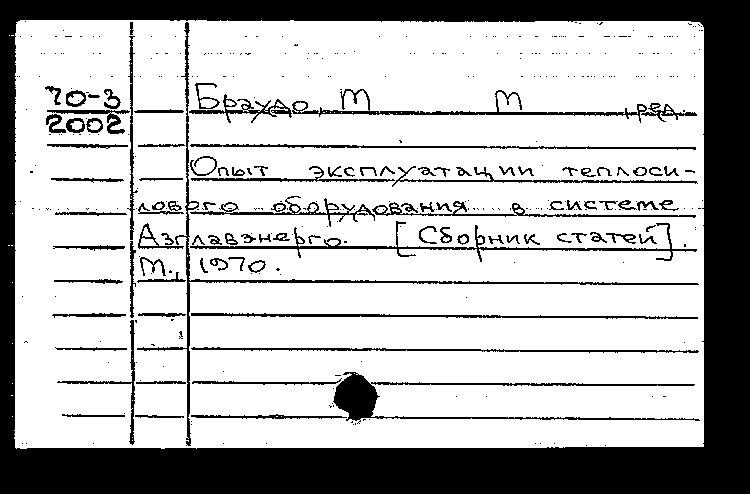 70-3
2002
Браудо, М М , ред.
Опыт эксплуатации теплоси-
лового оборудования в системе
Азглавэнерго. [Сборник статей].
М., 1970.